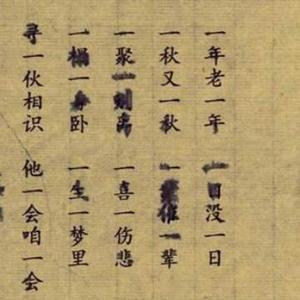 一年老一年 一日没一日
一秋又一秋 一 一辈
一聚一 一喜一伤悲
一榻一 卧 一生一梦里
寻一伙相识 他一会咱一会